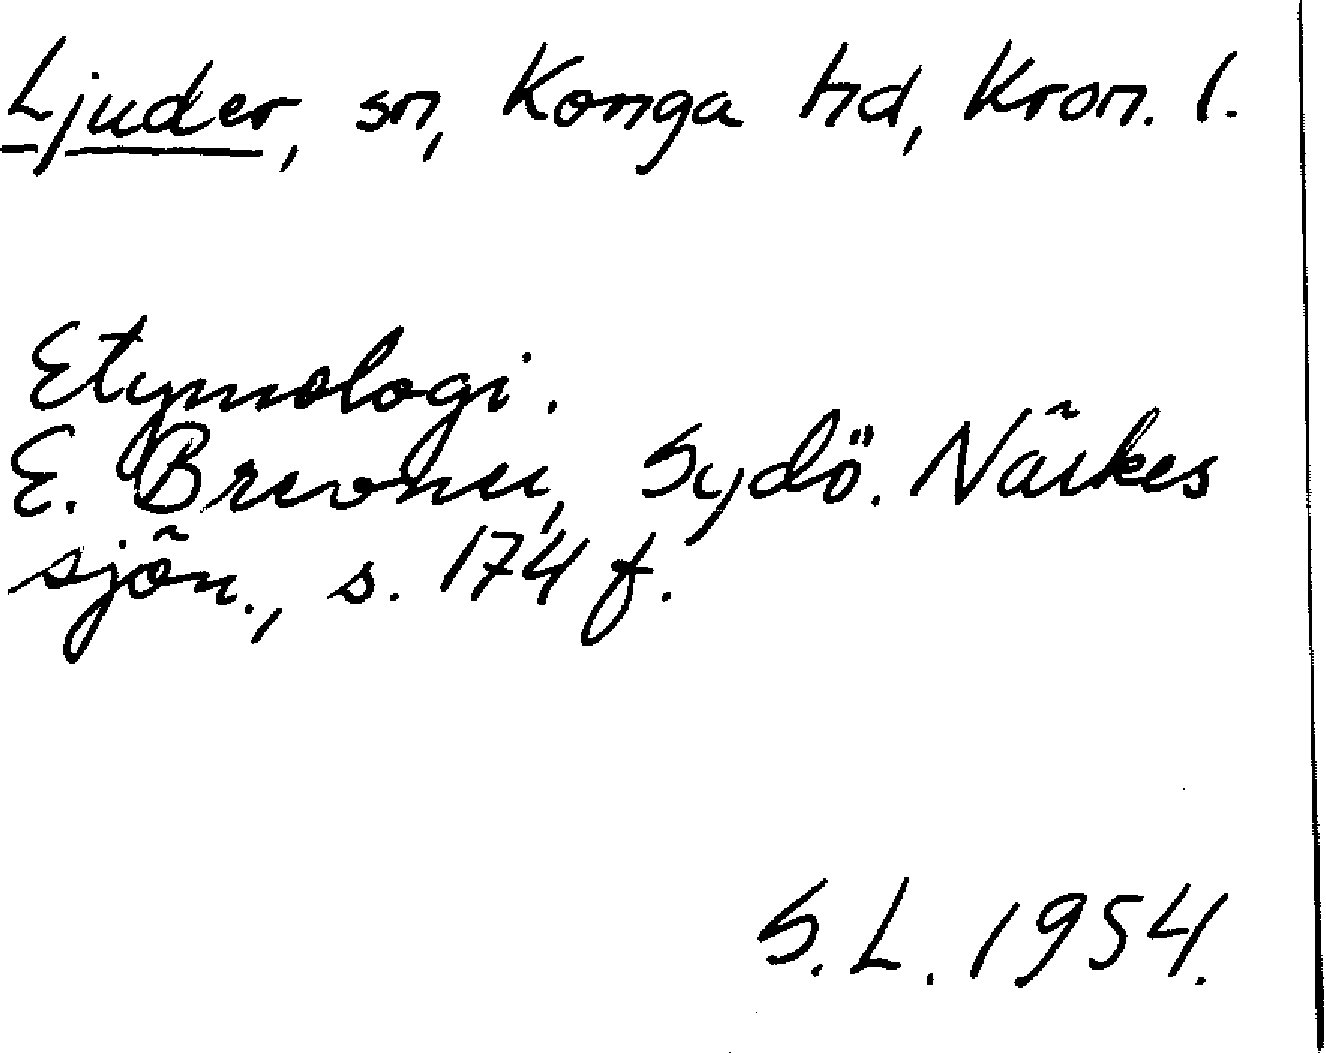 Ljuder, sn, Konga hd, Kron. l.
Etymologi.
E. Brevner, Sydö. Närkes
sjön., s. 174 f.
S. L. 1954.